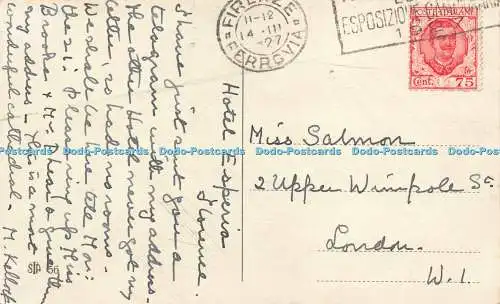 Hotel Esperia
Florence
I have just sent you a
telegram with my address -
the other Hotel never got my
letter, so had no rooms.
We shall be here till Mon:
the 21. Please ring up Miss
Brooke & Mrs
my address - This is a most
wonderful cathedral - M. Kellock
56
FIRENZE
11-12
14 · III
27
FERROVIA
ESPOSIZIONE
POSTE ITALIANE
Cent. 75
Miss Salmon
2 Upper Wimpole St.
London.
W.1.
Dodo-Postcards Dodo-Postcards Dodo-Postcards Dodo-Postcards Dodo-Postcards Dodo-Postcards